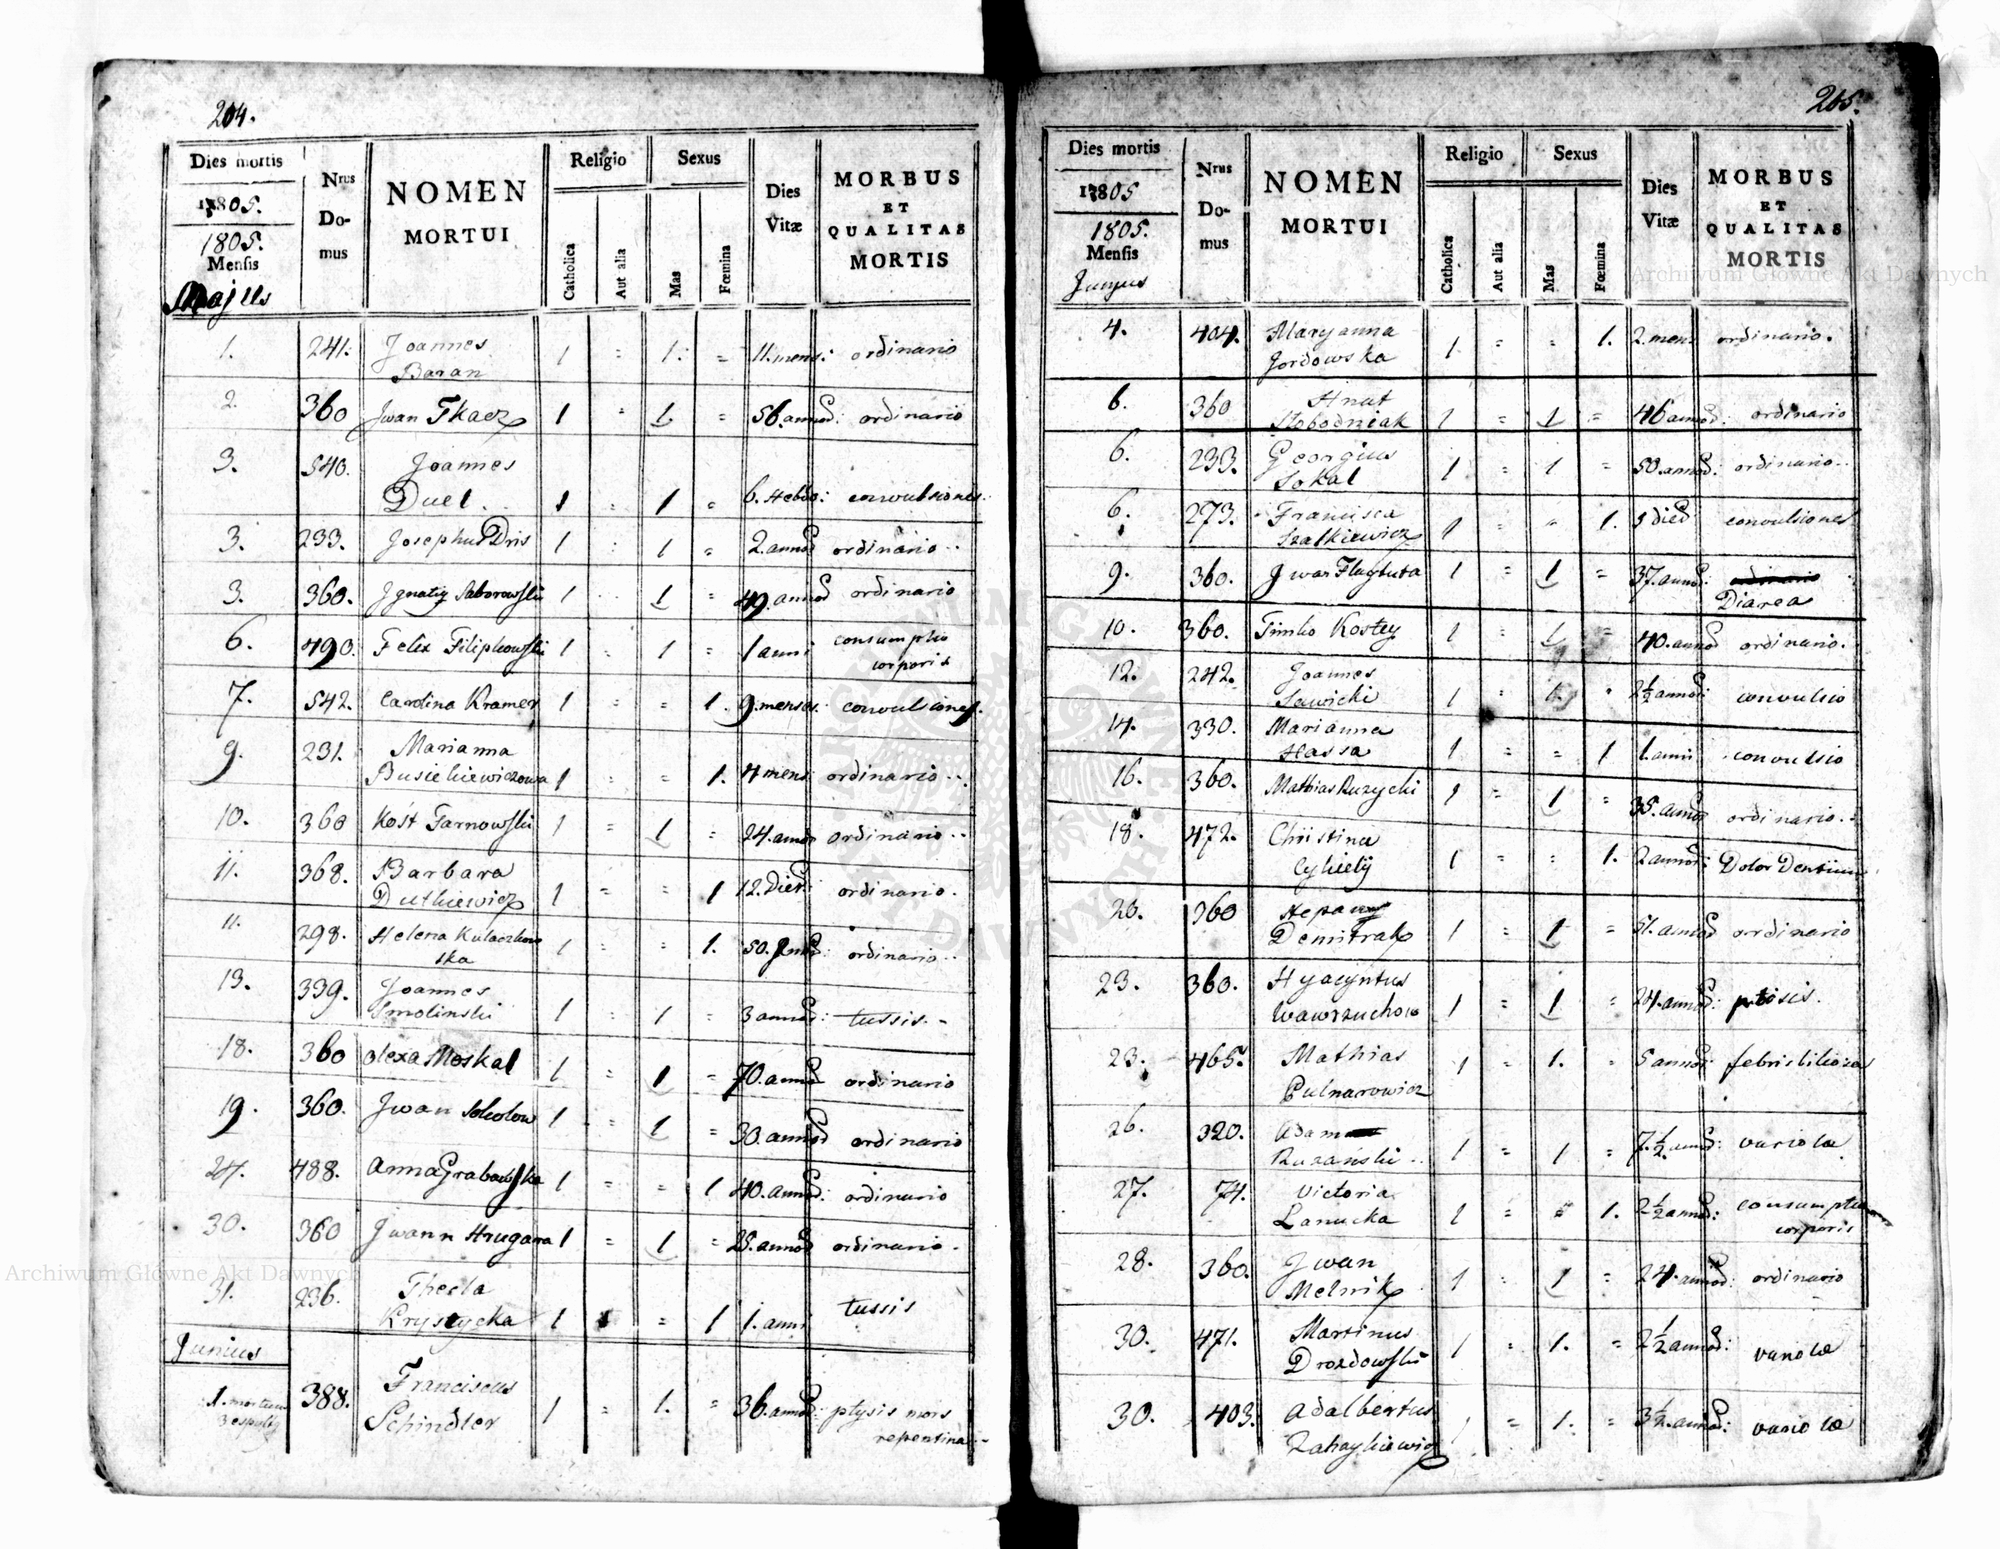 204.
Dies mortis
1805.
1805.
Mensis
Majus
Nrus
Do-
mus
NOMEN
MORTUI
Religio
Catholica
Aut alia
Sexus
Mas
Fœmina
Dies
Vitæ
MORBUS
ET
QUALITAS
MORTIS
1. 241. Joannes 1 = 1. = 11. mens: ordinario
Baran
2. 360 Jwan Tkacz 1 = 1 = 56. annoo: ordinario
3. 540. Joannes
Duel. 1 = 1 = 6. Hebdo: convulsiones.
3. 233. Josephus Dris 1 : 1 = 2. annoo ordinario
3. 360. Jgnatig Saborowski 1 1 = 49. annoo ordinario
6. 490. Felix Filipkowski 1 . 1 = 1 anni consumptio
corporis
7. 542. Carolina Kramer 1 = = 1. 9. menses. convulsiones.
9. 231. Marianna
Busiekiewiczowa 1 = = 1. 4 mens ordinario
10. 360 Kośt Tarnowski 1 = 1 = 24. annoo ordinario
11. 368. Barbara
Dutkiewicz 1 = = 1 12. dies: ordinario.
11. 298. Helena Kulaczkow
ska 1 = = 1. 50. ordinario
13. 339. Joannes
Smolinski 1 : 1 = 3 annoo: tussis.
18. 360 Olexa Moskal 1 = 1 = 70. annoo ordinario
19. 360. Jwan Sokolow 1 = 1 = 30. annoo ordinario
27. 488. Anna Grabowska 1 = = 1 40. annoo: ordinario
30. 360 Jwann Hrugara 1 = 1 = 28. annoo ordinario.
31. 236. Thecla
Krystycka 1 = 1 1. anni tussis
Junius
1. mortuus 388. Franciscus
3 sepultg Schindler 1 = 1. = 36. annoo: ptysis mors
repentina
205.
Dies mortis
1805
1805.
Mensis
Junyus
Nrus
Do-
mus
NOMEN
MORTUI
Religio
Catholica
Aut alia
Sexus
Mas
Fœmina
Dies
Vitæ
MORBUS
ET
QUALITAS
MORTIS
4. 404. Maryanna
Jordowska 1 = = 1. 2. mens ordinario.
6. 360 Hnat
Slobodniak 1 = 1 = 46 annoo: ordinario
6. 233. Georgius
Sokal 1 = 1 = 50. annoo: ordinario
6. 273. Francisca
Szatkiewicz 1 = = 1. 5 dies convulsiones
9. 360. Jwan Flagtuta 1 = 1 = 37. annoo: ordinario
Diarea
10. 360. Timko Kostey 1 = 1 = 40. annoo ordinario.
12. 242. Joannes
Sawicki 1 = 1. 2½ annoo: convulsio
14. 330. Marianna
Hassa 1 = = 1 1. anni convulsio
16. 360. Mathias Ruzycki 1 = 1 = 35. annoo ordinario
18. 472. Christina
Cykiely 1 = = 1. 2 annoo: Dolor Dentium
20. 360
Demitrak 1 = 1 = 51. annoo ordinario
23. 360. Hyacyntus
Wawrzuchow 1 = 1 = 24. annoo: ptisis.
23. 465. Mathias
Pulnarowicz 1 = 1. = 5 annoo: febris biliosa
26. 320. Adam
Ruzański 1 = 1 = 7½ annoo: variolæ
27. 74. Victoria
Lanucka 1 = = 1. 2½ annoo: consumptio
corporis
28. 360. Jwan
Melnik 1 = 1 = 24. annoo: ordinario
30. 471. Martinus
Drozdowski 1 = 1. = 2½ annoo: variolæ
30. 403. Adalbertus
Zahaykiewicz 1 = 1. = 3½. annoo: variolæ
Archiwum Główne Akt Dawnych
Archiwum Główne Akt Dawnych
ARCHIWUM GŁÓWNE AKT DAWNYCH